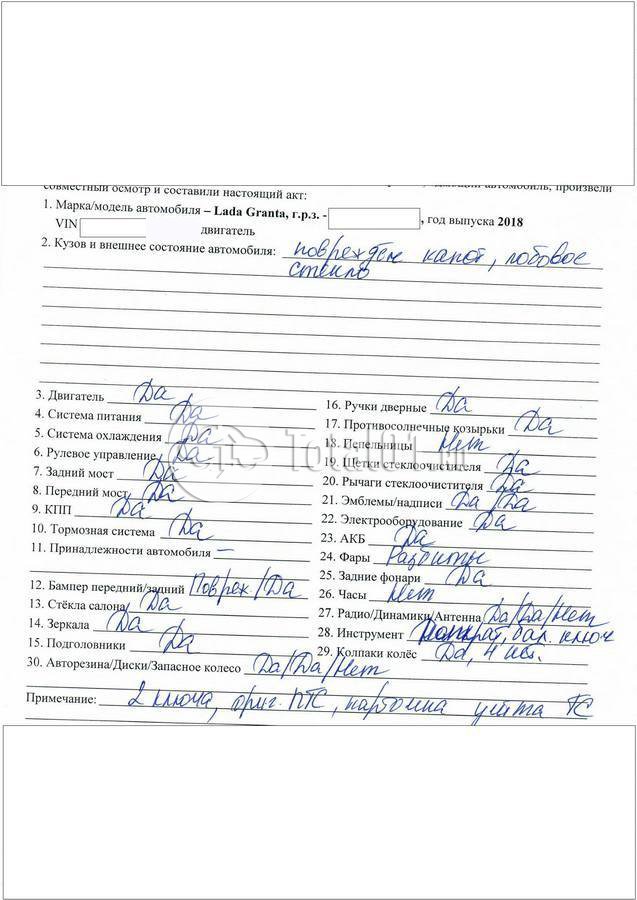 совместный осмотр и составили настоящий акт:
1. Марка/модель автомобиля – Lada Granta, г.р.з. - , год выпуска 2018
VIN двигатель
2. Кузов и внешнее состояние автомобиля: поврежден капот, лобовое
стекло
3. Двигатель Да
4. Система питания Да
5. Система охлаждения Да
6. Рулевое управление Да
7. Задний мост Да
8. Передний мост Да
9. КПП Да
10. Тормозная система Да
11. Принадлежности автомобиля —
12. Бампер передний/задний Повреж/Да
13. Стёкла салона Да
14. Зеркала Да
15. Подголовники Да
16. Ручки дверные Да
17. Противосолнечные козырьки Да
18. Пепельницы Нет
19. Щетки стеклоочистителя Да
20. Рычаги стеклоочистителя Да
21. Эмблемы/надписи Да/Да
22. Электрооборудование Да
23. АКБ Да
24. Фары Разбиты
25. Задние фонари Да
26. Часы Нет
27. Радио/Динамики/Антенна Да/Да/Нет
28. Инструмент Домкрат, бал. ключ
29. Колпаки колёс Да, 4 шт.
30. Авторезина/Диски/Запасное колесо Да/Да/Нет
Примечание: 2 ключа, ориг. ПТС, ТС